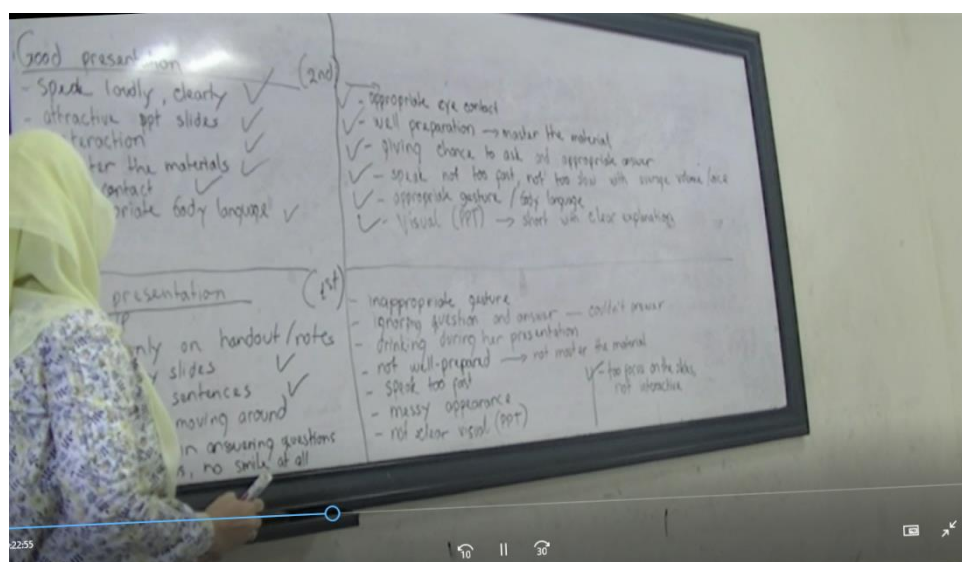 Good presentation
- Speak loudly, clearly ✓
- attractive ppt slides ✓
teraction ✓
ter the materials ✓
contact ✓
priate body language ✓
(2nd)
✓ - appropriate eye contact
✓ - well preparation → master the material
✓ - giving chance to ask and appropriate answer
✓ - speak not too fast, not too slow with average volume /
✓ - appropriate gesture / body language
✓ - Visual (PPT) → short with clear explanations
presentation
nly on handout/notes
slides ✓
sentences ✓
moving around
in answering questions
, no smile at all
(1st)
- inappropriate gesture
- ignoring question and answer — couldn't answer
- drinking during her presentation
- not well-prepared → not master the material
- speak too fast
- messy appearance
- not clear visual (PPT)
✓ - too focus on the slides,
not interactive
22:55
10
30